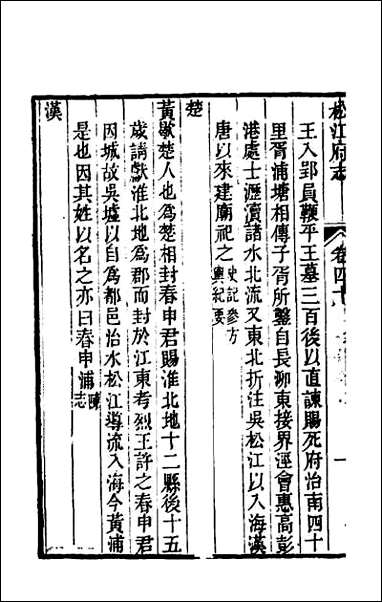 松江府志 卷四十
王入郢員鞭平王墓三百後以直諫賜死府治南四十
里胥浦塘相傳子胥所鑿自長泖東接界涇會惠高彭
港處士瀝瀆諸水北流又東北折注吳松江以入海漢
唐以來建廟祀之史記參方輿紀要
楚
黃歇楚人也為楚相封春申君賜淮北地十二縣後十五
歲請獻淮北地為郡而封於江東考烈王許之春申君
因城故吳墟以自為都邑治水松江導流入海今黃浦
是也因其姓以名之亦曰春申浦陳志
漢